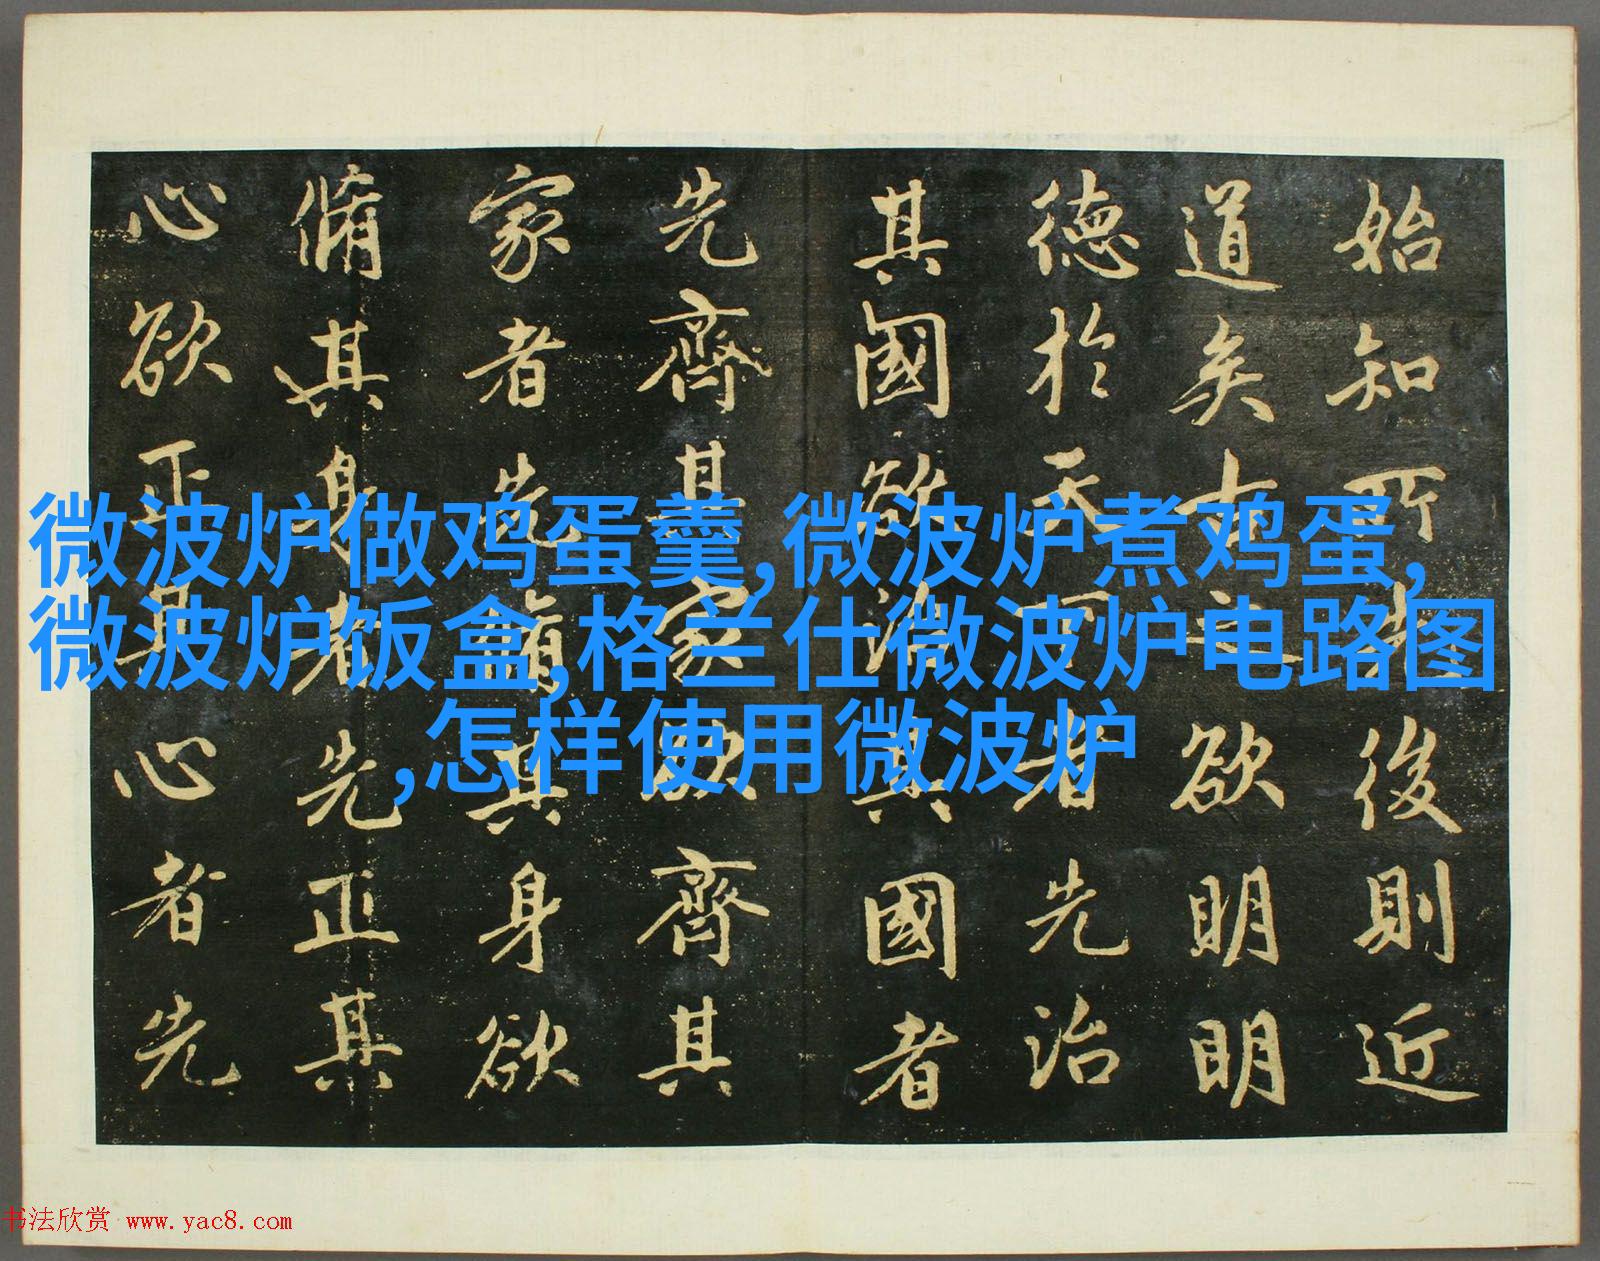 始知所先後則近
道矣古之欲明明
德於天下者先治
其國欲治其國者
先齊其家欲齊其
家者先脩其身欲
脩其身者先正其
心欲正其心者先
微波炉做鸡蛋羹,微波炉煮鸡蛋,
微波炉饭盒,格兰仕微波炉电路图
,怎样使用微波炉
书法欣赏 www.yac8.com